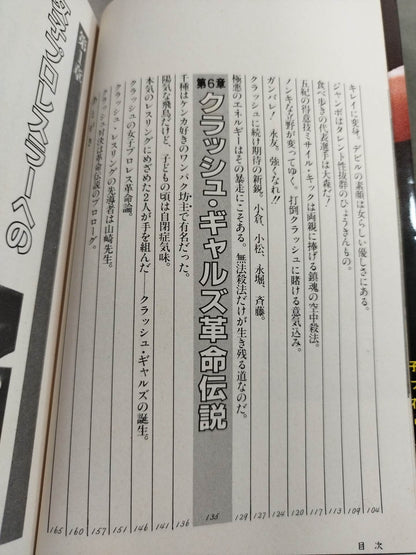 キレイに変身。デビルの素顔は女らしい優しさにある。 104
ジャンボはタレント性抜群のひょうきんもの。 109
食べ歩きの代表選手は大森だ! 113
五紀の得意技ミサイル・キックは両親に捧げる鎮魂の空中殺法。 117
ノンキな野が変ってゆく。打倒クラッシュに賭ける意気込み。 120
ガンバレ! 永友。強くなれ!! 124
クラッシュに続け期待の新鋭。小倉、小松、永堀、斉藤。 127
極悪のエネルギーはその暴走にこそある。無法殺法だけが生き残る道なのだ。 129
第6章 クラッシュ・ギャルズ革命伝説 135
千種はケンカ好きのワンパク坊主で有名だった。 136
陽気な飛鳥だけど、子どもの頃は自閉症気味。 141
本気のレスリングにめざめた2人が手を組んだ——クラッシュ・ギャルズの誕生。 146
クラッシュの女子プロレス革命論。 151
クラッシュ・レスリングの先導者は山崎先生。 157
クラッシュ対決は革命伝説のプロローグ。 160
あとがき 165
目次
第1章
プロレスラーへの